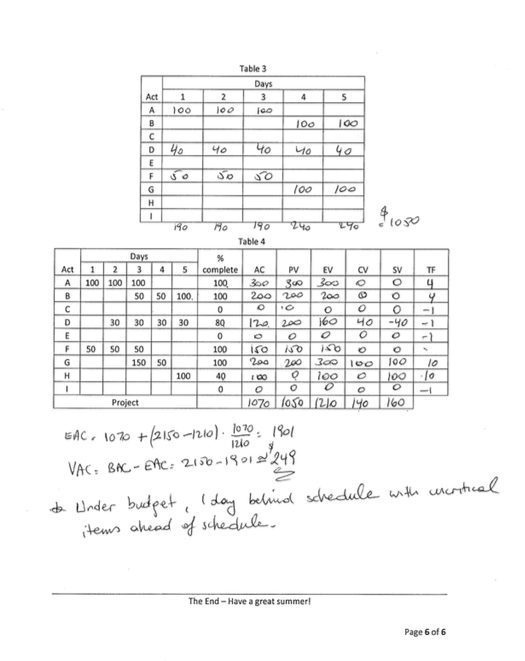 Table 3
Days
Act 1 2 3 4 5
A 100 100 100
B 100 100
C
D 40 40 40 40 40
E
F 50 50 50
G 100 100
H
I
190 190 190 240 240 $ = 1050
Table 4
Days %
Act 1 2 3 4 5 complete AC PV EV CV SV TF
A 100 100 100 100 300 300 300 0 0 4
B 50 50 100 100 200 200 200 0 0 4
C 0 0 0 0 0 0 -1
D 30 30 30 30 80 120 200 160 40 -40 -1
E 0 0 0 0 0 0 -1
F 50 50 50 100 150 150 150 0 0
G 150 50 100 200 200 300 100 100 10
H 100 40 100 0 100 0 100 10
I 0 0 0 0 0 0 -1
Project 1070 1050 1210 140 160
EAC = 1070 + (2150-1210) · 1070/1210 = 1901
VAC = BAC - EAC = 2150-1901 ≅ $249
Under budget, 1 day behind schedule with uncritical
items ahead of schedule.
The End – Have a great summer!
Page 6 of 6